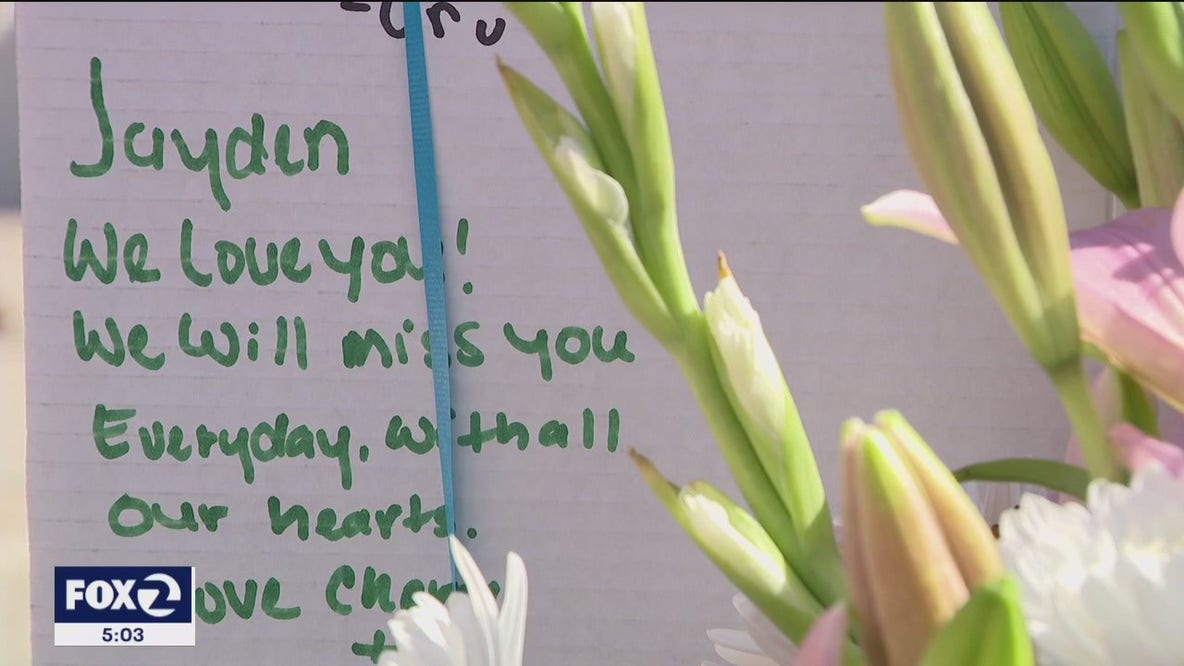 Jayden
We Love you!
We will miss you
Everyday, with all
our hearts.
ove
FOX 2
5:03